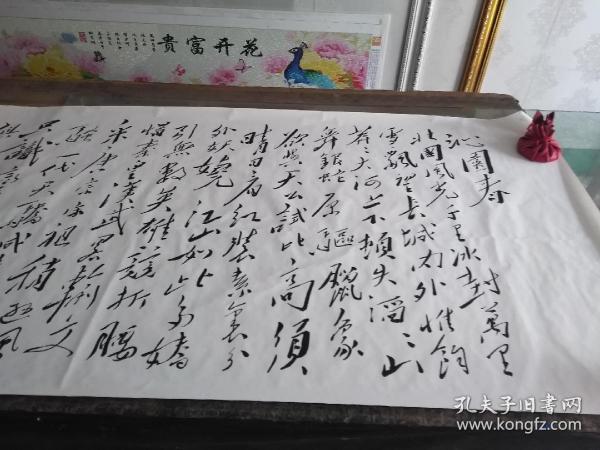 花开富貴
沁園春
北國風光千里冰封萬里
雪飄望長城内外惟餘
莽大河上下頓失滔滔山
舞銀蛇原驅臘象
欲與天公試比高須
晴日看紅裝素裹分
外妖嬈江山如此多嬌
引無數英雄競折腰
惜秦皇漢武畧輸文
采唐宗宋祖稍遜風
一代天驕成
只識
孔夫子旧书网
www.kongfz.com